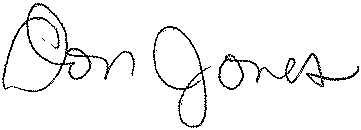 Don Jones